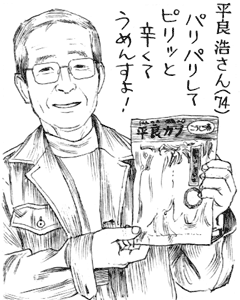 平良 浩さん(74)
パリパリして
ピリッと
辛くて
うめんすよ!
平良カブ